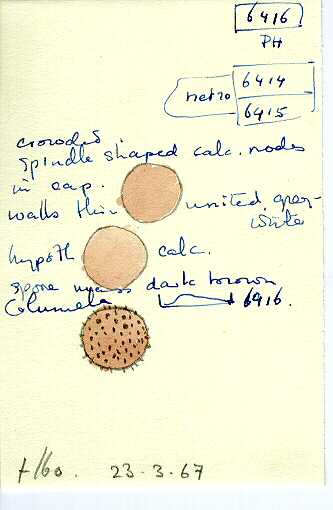 6416
PH
netzo
6414
6415
crowded
spindle shaped calc. nodes
in cap.
walls thin united, grey-
white
hypoth calc.
spore mass dark brown
Columela 6416.
23.3.67